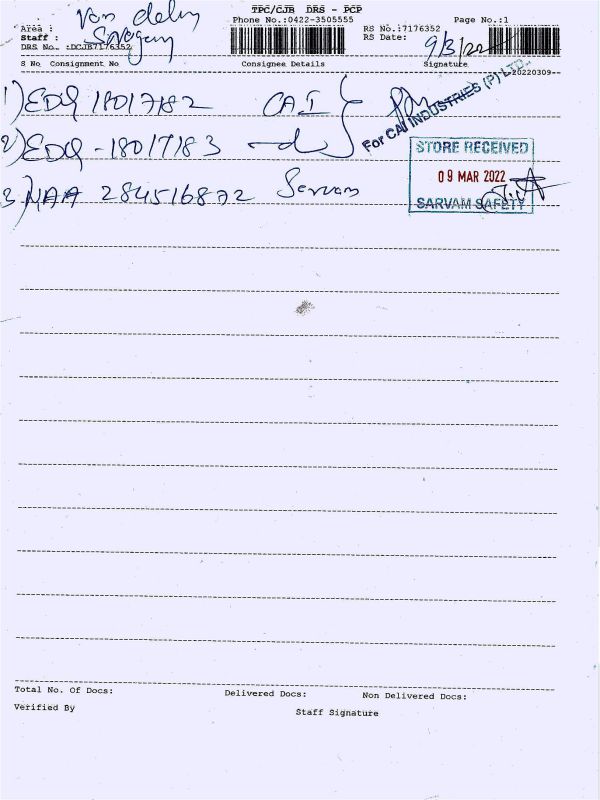 TPC/CJB DRS - PCP
Area : Van delry
Phone No.:0422-3505555
Page No.:1
Staff :
RS No.:7176352
RS Date: 9/3/22
DRS No. :DCJB7176352
S No Consignment No Consignee Details Signature
20220309
1) EDQ 18017182 CAI
For CAI INDUSTRIES (P) LTD.
2) EDQ - 18017183
STORE RECEIVED
09 MAR 2022
SARVAM SAFETY
3) MAA 284516872 Servam
Total No. Of Docs: Delivered Docs: Non Delivered Docs:
Verified By Staff Signature